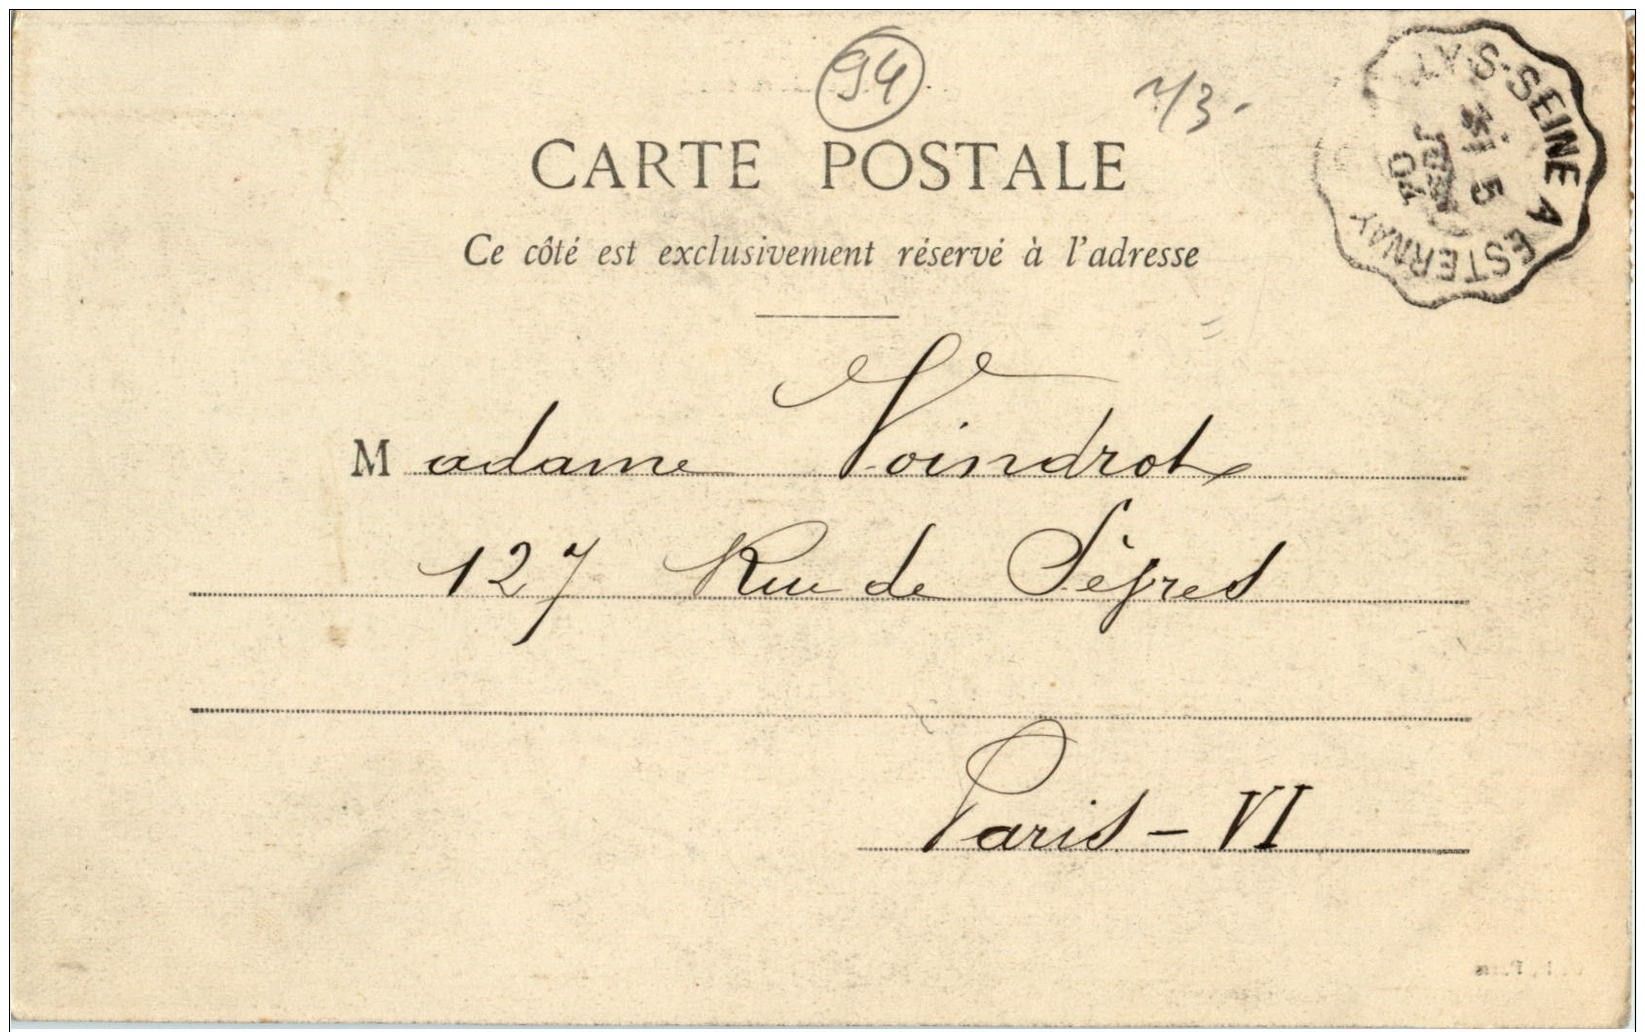 94
1/3.
CARTE POSTALE
Ce côté est exclusivement réservé à l'adresse
Madame Voindrot
127 Rue de Sèvres
Paris - VI
S-SEINE A ESTERNAY
5
04